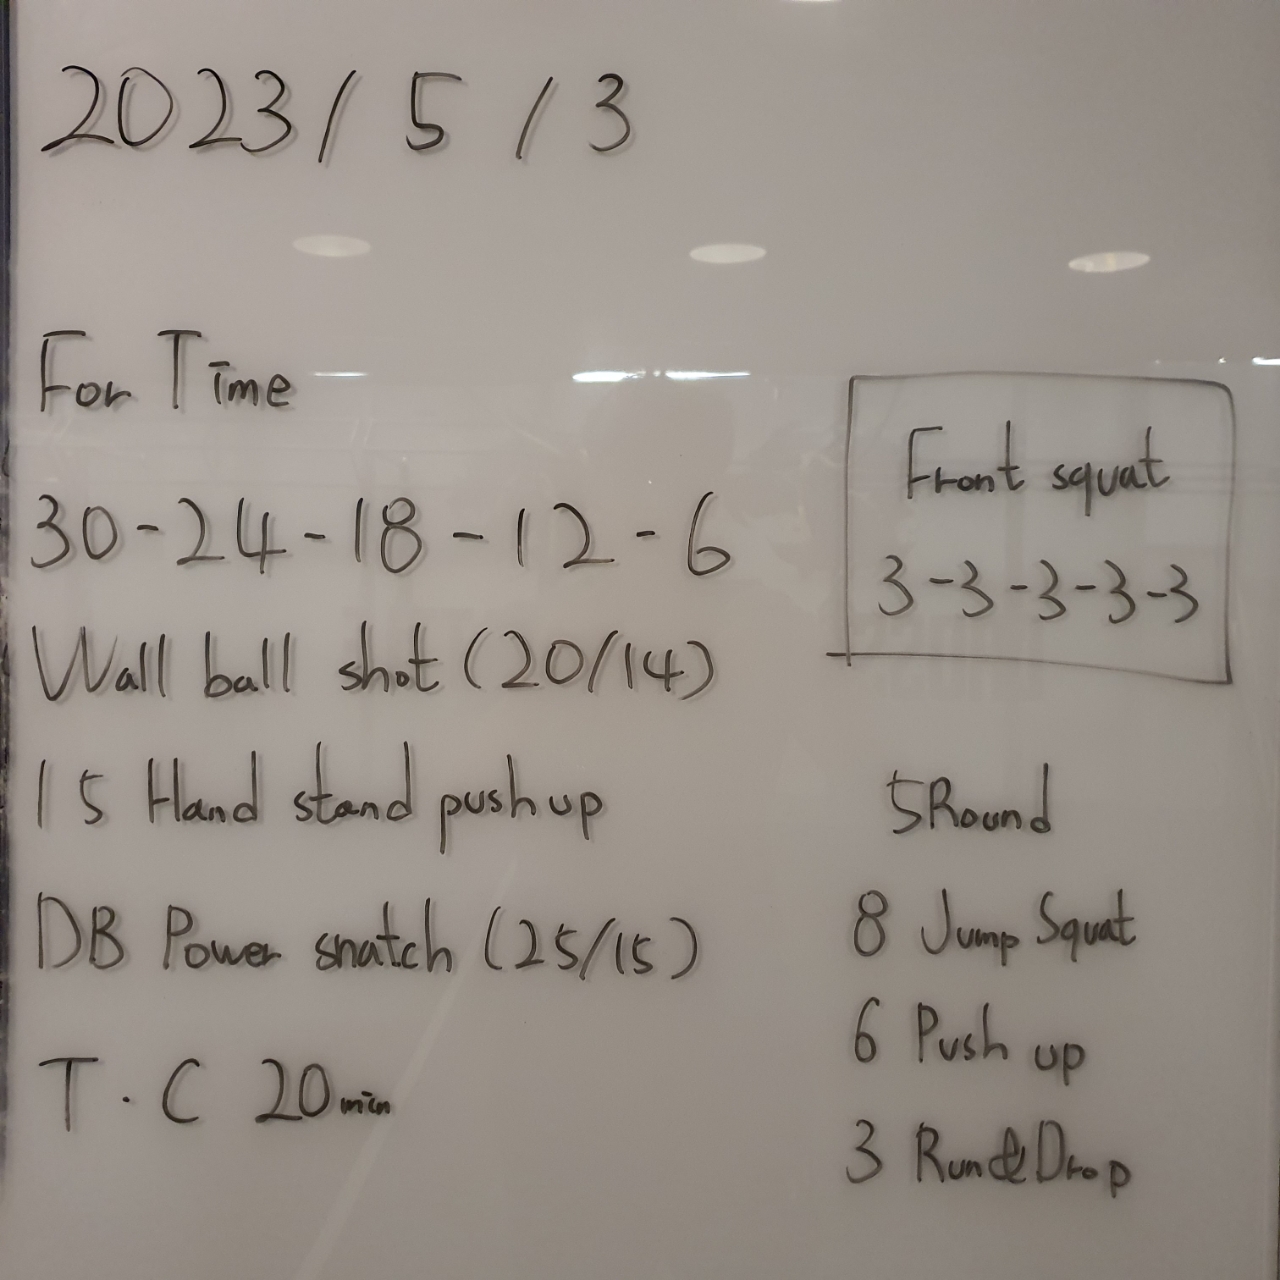 2023/5/3
For Time
30-24-18-12-6
Wall ball shot (20/14)
15 Hand stand push up
DB Power snatch (25/15)
T.C 20min
Front squat
3-3-3-3-3
5Round
8 Jump Squat
6 Push up
3 Run&Drop